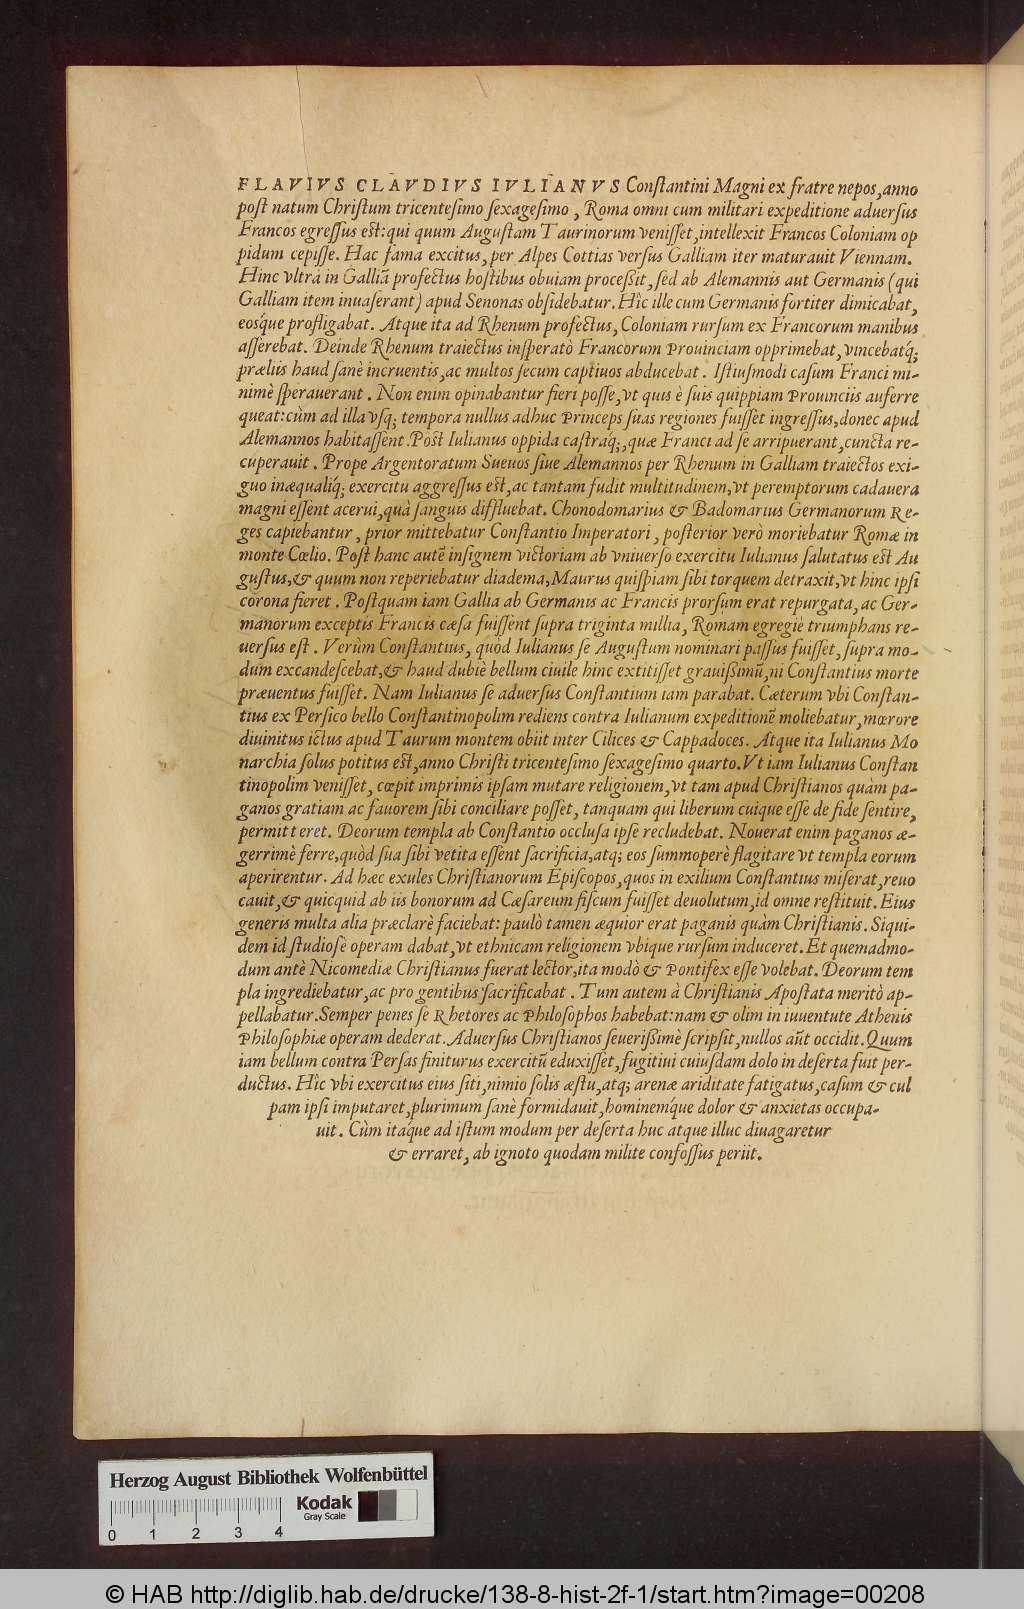 FLAVIVS CLAVDIVS IVLIANVS Conſtantini Magni ex fratre nepos, anno
poſt natum Chriſtum tricenteſimo ſexageſimo, Roma omni cum militari expeditione aduerſus
Francos egreſſus eſt: qui quum Auguſtam Taurinorum veniſſet, intellexit Francos Coloniam op
pidum cepiſſe. Hac fama excitus, per Alpes Cottias verſus Galliam iter maturauit Viennam.
Hinc vltrà in Galliā profectus hoſtibus obuiam proceßit, ſed ab Alemannis aut Germanis (qui
Galliam item inuaſerant) apud Senonas obſidebatur. Hîc ille cum Germanis fortiter dimicabat,
eosq́ue profligabat. Atque ita ad Rhenum profectus, Coloniam rurſum ex Francorum manibus
aſſerebat. Deinde Rhenum traiectus inſperatò Francorum Prouinciam opprimebat, vincebatq́;
præliis haud ſanè incruentis, ac multos ſecum captiuos abducebat. Iſtiuſmodi caſum Franci mi-
nimè ſperauerant. Non enim opinabantur fieri poſſe, vt quis è ſuis quippiam Prouinciis auferre
queat: cùm ad illa vſq; tempora nullus adhuc Princeps ſuas regiones fuiſſet ingreſſus, donec apud
Alemannos habitaſſent. Pòſt Iulianus oppida caſtraq́;, quæ Franci ad ſe arripuerant, cuncta re-
cuperauit. Prope Argentoratum Sueuos ſiue Alemannos per Rhenum in Galliam traiectos exi-
guo inæqualiq́; exercitu aggreſſus eſt, ac tantam fudit multitudinem, vt peremptorum cadauera
magni eſſent acerui, quà ſanguis difflueba​t. Chonodomarius & Badomarius Germanorum Re-
ges capiebantur, prior mittebatur Conſtantio Imperatori, poſterior verò moriebatur Romæ in
monte Cœlio. Poſt hanc autē inſignem victoriam ab vniuerſo exercitu Iulianus ſalutatus eſt Au
guſtus, & quum non reperiebatur diadema, Maurus quiſpiam ſibi torquem detraxit, vt hinc ipſi
corona fieret. Poſtquam iam Gallia ab Germanis ac Francis prorſum erat repurgata, ac Ger-
manorum exceptis Francis cæſa fuiſſent ſupra triginta millia, Romam egregiè triumphans re-
uerſus eſt. Verùm Conſtantius, quòd Iulianus ſe Auguſtum nominari paſſus fuiſſet, ſupra mo-
dum excandeſcebat, & haud dubiè bellum ciuile hinc extitiſſet grauißimū, ni Conſtantius morte
præuentus fuiſſet. Nam Iulianus ſe aduerſus Conſtantium iam parabat. Cæterum vbi Conſtan-
tius ex Perſico bello Conſtantinopolim rediens contra Iulianum expeditionē moliebatur, mœrore
diuinitus ictus apud Taurum montem obiit inter Cilices & Cappadoces. Atque ita Iulianus Mo
narchia ſolus potitus eſt, anno Chriſti tricenteſimo ſexageſimo quarto. Vt iam Iulianus Conſtan
tinopolim veniſſet, cœpit imprimis ipſam mutare religionem, vt tam apud Chriſtianos quàm pa-
ganos gratiam ac fauorem ſibi conciliare poſſet, tanquam qui liberum cuique eſſe de fide ſentire,
permitteret. Deorum templa ab Conſtantio occluſa ipſe recludebat. Nouerat enim paganos æ-
gerrimè ferre, quòd ſua ſibi vetita eſſent ſacrificia, atq; eos ſummoperè flagitare vt templa eorum
aperirentur. Ad hæc exules Chriſtianorum Epiſcopos, quos in exilium Conſtantius miſerat, reuo
cauit, & quicquid ab iis bonorum ad Cæſareum fiſcum fuiſſet deuolutum, id omne reſtituit. Eius
generis multa alia præclarè faciebat: paulò tamen æquior erat paganis quàm Chriſtianis. Siqui-
dem id ſtudioſè operam dabat, vt ethnicam religionem vbique rurſum induceret. Et quemadmo-
dum antè Nicomediæ Chriſtianus fuerat lector, ita modò & Pontifex eſſe volebat. Deorum tem
pla ingrediebatur, ac pro gentibus ſacrificabat. Tum autem à Chriſtianis Apoſtata meritò ap-
pellabatur. Semper penes ſe Rhetores ac Philoſophos habebat: nam & olim in iuuentute Athenis
Philoſophiæ operam dederat. Aduerſus Chriſtianos ſeuerißimè ſcripſit, nullos aūt occidit. Quum
iam bellum contra Perſas finiturus exercitū eduxiſſet, fugitiui cuiuſdam dolo in deſerta fuit per-
ductus. Hîc vbi exercitus eius ſiti, nimio ſolis æſtu, atq; arenæ ariditate fatigatus, caſum & cul
pam ipſi imputaret, plurimum ſanè formidauit, hominemq́ue dolor & anxietas occupa-
uit. Cùm itaq́ue ad iſtum modum per deſerta huc atque illuc diuagaretur
& erraret, ab ignoto quodam milite confoſſus periit.
Herzog August Bibliothek Wolfenbüttel
Kodak
Gray Scale
0 1 2 3 4
© HAB http://diglib.hab.de/drucke/138-8-hist-2f-1/start.htm?image=00208